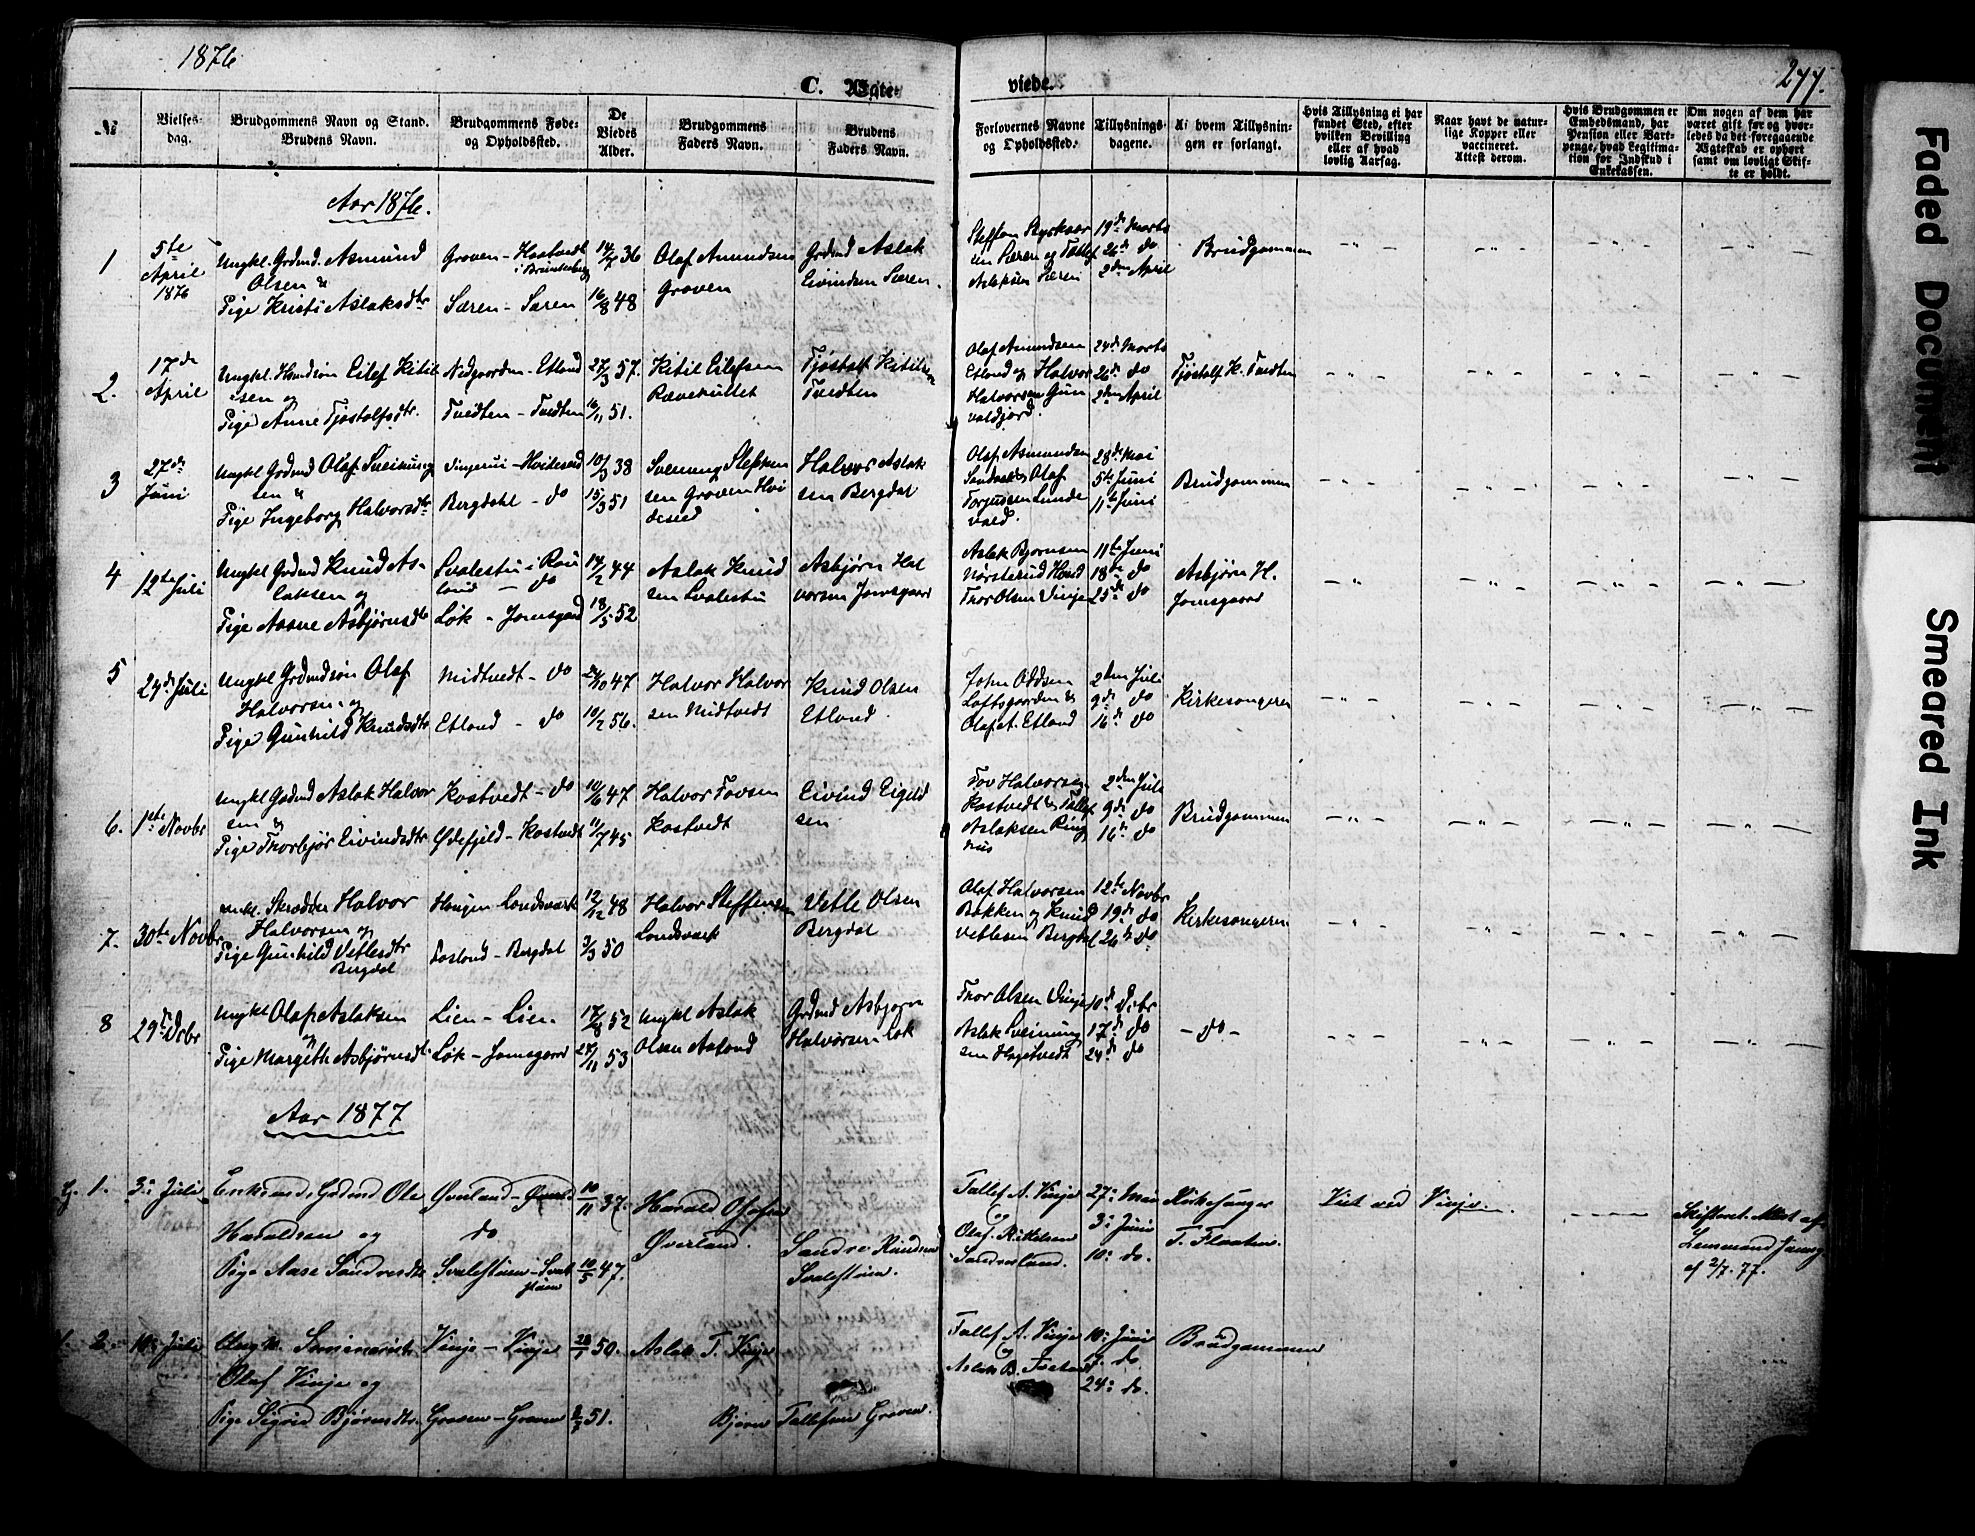 1876
277.
C. Ægte-
viede.
№
Vielses-
dag.
Brudgommens Navn og Stand.
Brudens Navn.
Brudgommens Føde-
og Opholdssted.
De
Viedes
Alder.
Brudgommens
Faders Navn.
Brudens
Faders Navn.
Forlovernes Navne
og Opholdssted.
Tillysnings-
dagene.
Af hvem Tillysnin-
gen er forlangt.
Hvis Tillysning ei har
fundet Sted, efter
hvilken Bevilling
eller af hvad
lovlig Aarsag.
Naar havt de natur-
lige Kopper eller
vaccineret.
Attest derom.
Hvis Brudgommen er
Embedsmand, har
Pension eller Vart-
penge, hvad Legitima-
tion for Indskud i
Enkekassen.
Om nogen af dem har
været gift før og hvor-
ledes da det foregaaende
Ægteskab er ophørt
samt om lovligt Skif-
te er holdt.
Aar 1876.
1
5te
April
1876
Ungkl. Grdmd. Asmund
Olsen &
Pige Kristi Aslaksdtr
Groven - Haatvedt
i Brunkeberg
Særen - Særen
14/7 36
16/8 48
Olaf Amundsen
Groven
Grdmd Aslak
Eivindsen Særen.
Steffen
Særen og Tallef
Aslaksen Særen
19de Marts
26de do
2den April
Brudgommen
2.
17de
April
Ungkl. Eilef Kitil
sen og
Pige Anne Tjøstolfsdtr.
Nedgaarden - Etland
Tvedten - Tvedten
27/3 57.
16/11 51.
Kitil Eilefsen
Rævekultet
Tjøstolf Kitilsen
Tvedten
Olaf Amundsen
Etland og Halvor
Halvorsen Gun
valdjord.
24de Marts
26de do
2den April
Tjøstolf K. Tvedten
3
27de
Juni
Ungkl Grdmd Olaf Sveinung
sen &
Pige Ingeborg Halvorsdtr
- Hvideseid
Bergdahl - do
10/3 38
15/3 51
Svenung Steffen
sen Groven Hvi
deseid
Halvor Aslak
sen Bergdal
Olaf Asmundsen
Olaf
Torjussen Lunde
vald.
28de Mai
5te Juni
11te Juni
Brudgommen
4
12te Juli
Ungkl Grdmd Knud As-
laksen og
Pige Aasne Asbjørnsdtr
Svalestu i Rau
land - do
Løk - Jamsgaard
14/2 44
18/5 52
Aslak Knud
sen Svalestu
Asbjørn Hal
vorsen Jamsgaard
Aslak Bjørnsen
Nørsterud
Thor Olsen Vinje
11te Juni
18de do
25de do
Asbjørn H.
Jamsgaard
5
24de Juli
Ungkl Grdmdsøn Olaf
Halvorsen og
Pige Gunhild Knudsdtr
Midtvedt - do
Etland - do
47
10/2 56.
Halvor Halvor
sen Midtvedt
Knud Olsen
Etland.
John Oddsen
Loftsgaarden &
Olaf A. Etland
2den Juli
9de do
16de do
Kirkesangeren
6.
1ste Novbr
Ungkl Grdmd Aslak Halvor
sen &
Pige Thorbjør Eivindsdtr
Kostvedt - do
Ødefjeld - Kostvedt
10/6 47
11/7 45
Halvor Tovsen
Kostvedt
Eivind Eigild
sen
Tov Halvorsen
Kostvedt & Tallef
Aslaksen Ring
hus
2den Juli
9de do
16de do
Brudgommen
7.
30te Novbr
Skrædder Halvor
Halvorsen og
Pige Gunhild Vetlesdtr
Bergdal
Haugen Landsværk
Bergdal
12/12 48
3/3 50
Halvor Steffensen
Landsværk
Vetle Olsen
Bergdal
Olaf Halvorsen
Bakken og Knud
Vetlesen Bergdal
12te Novbr
19de do
26de do
Kirkesangeren
8
29de Dcbr
Ungkl Olaf Aslaksen
&
Pige Margith Asbjørnsdtr
Lien - Lien
Løk - Jamsgaard
17/8 52
27/11 53
Ungkl Aslak
Olsen Asland
Grdmd Asbjørn
Halvorsen Løk
Thor Olsen Vinje
Aslak Sveinung
sen Hagetvedt
10de Dcbr
17de do
24de do
- do -
Aar 1877
1.
3: Juli
Enkemd. Grdmd Ole
Haraldsen og
Pige Aase Sandresdtr
Øverland - Øverl.
do
Svalestuen - Sval
stuen
10/11 37.
10/5 47.
Harald Olafsen
Øverland.
Sandre Knudsen
Svalestuen.
Tallef A. Vinje
og
Olaf Rikelsen
Sandresland.
27: Mai
3: Juni
10: do.
Kirkesanger
T. Flaaten.
Viet ved Vinje
Skifteret. Attest af
Lensmand
af 2/7. 77.
2.
10: Juli
Ungk. Seminarist
Olaf Vinje og
Pige Sigrid Bjørnsdtr.
Vinje - Vinje
Groven - Groven
50.
51.
Aslak T. Vinje
Bjørn Tallefsen Groven.
Tallef A. Vinje
&
Aslak B.
10: Juni
17. do
24: do.
Brudgommen
Faded Document
Smeared Ink